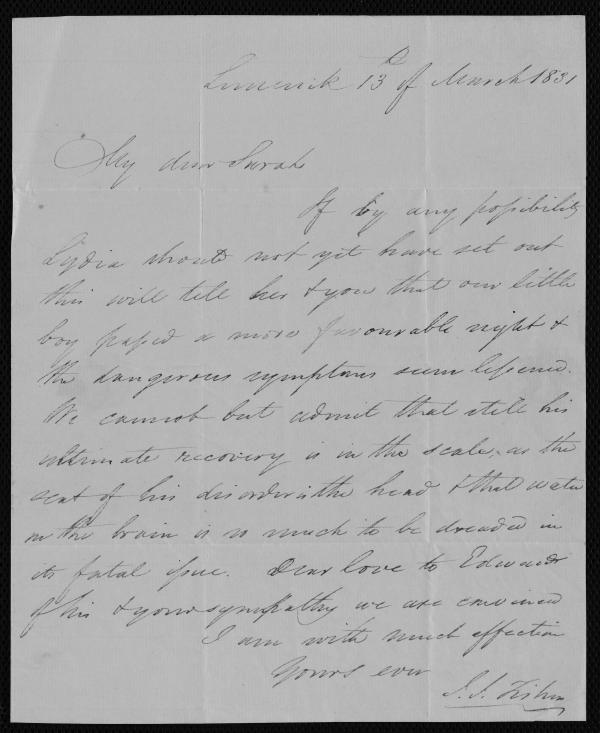 Limerick 13th of March 1831
My dear Sarah
If by any possibility
Lydia should not yet have set out
this will tell her & you that our little
boy passed a more favourable night &
the dangerous symptoms seem lessened.
We cannot but admit that still his
ultimate recovery is in the scale, as the
seat of his disorder is the head & that water
on the brain is so much to be dreaded in
its fatal issue. Dear love to Edward
of his & your sympathy we are convinced
I am with much affection
Yours ever
J. J. Fisher